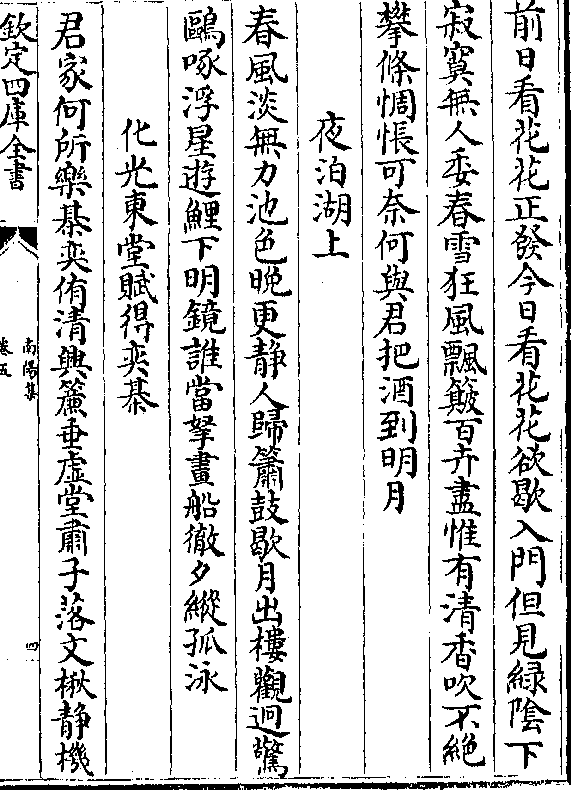 前日看花花正發今日看花花欲歇入門但見緑陰下
寂寞無人委春雪狂風飄簸百卉盡惟有清香吹不絶
攀條惆悵可奈何與君把酒到明月
夜泊湖上
春風淡無力池色晩更静人歸簫鼓歇月出樓觀迥驚
鷗啄浮星遊鯉下明鏡誰當拏畫船徹夕縱孤泳
化光東堂賦得奕棊
君家何所樂棊奕侑清興簾垂虚堂肅子落文楸静機
欽定四庫全書
南陽集
卷五
四